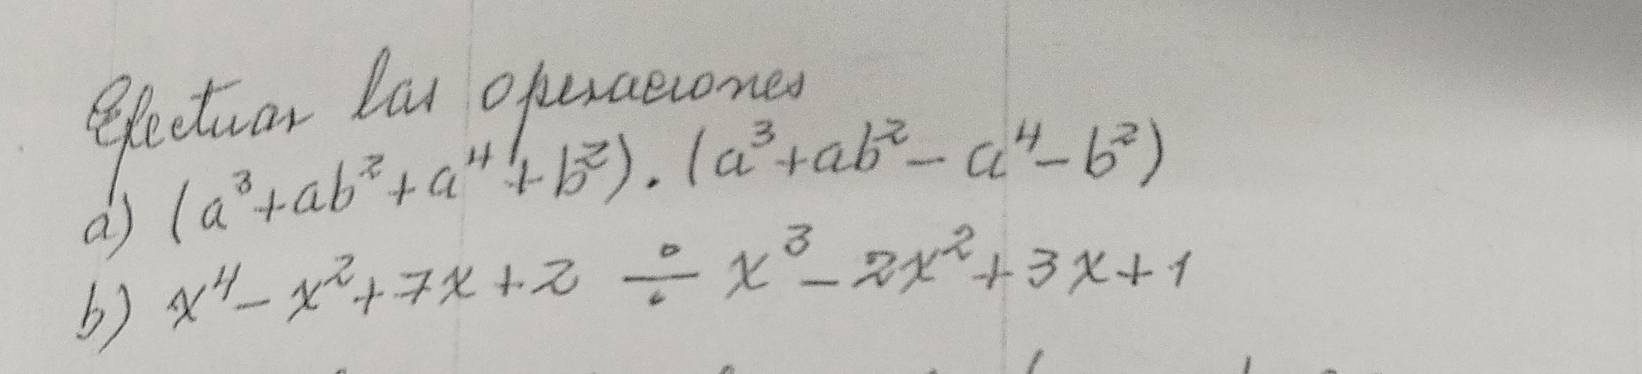 Efectuar las operaciones
a) (a³+ab²+a⁴+b²).(a³+ab²-a⁴-b²)
b) x⁴-x²+7x+2 ÷ x³-2x²+3x+1